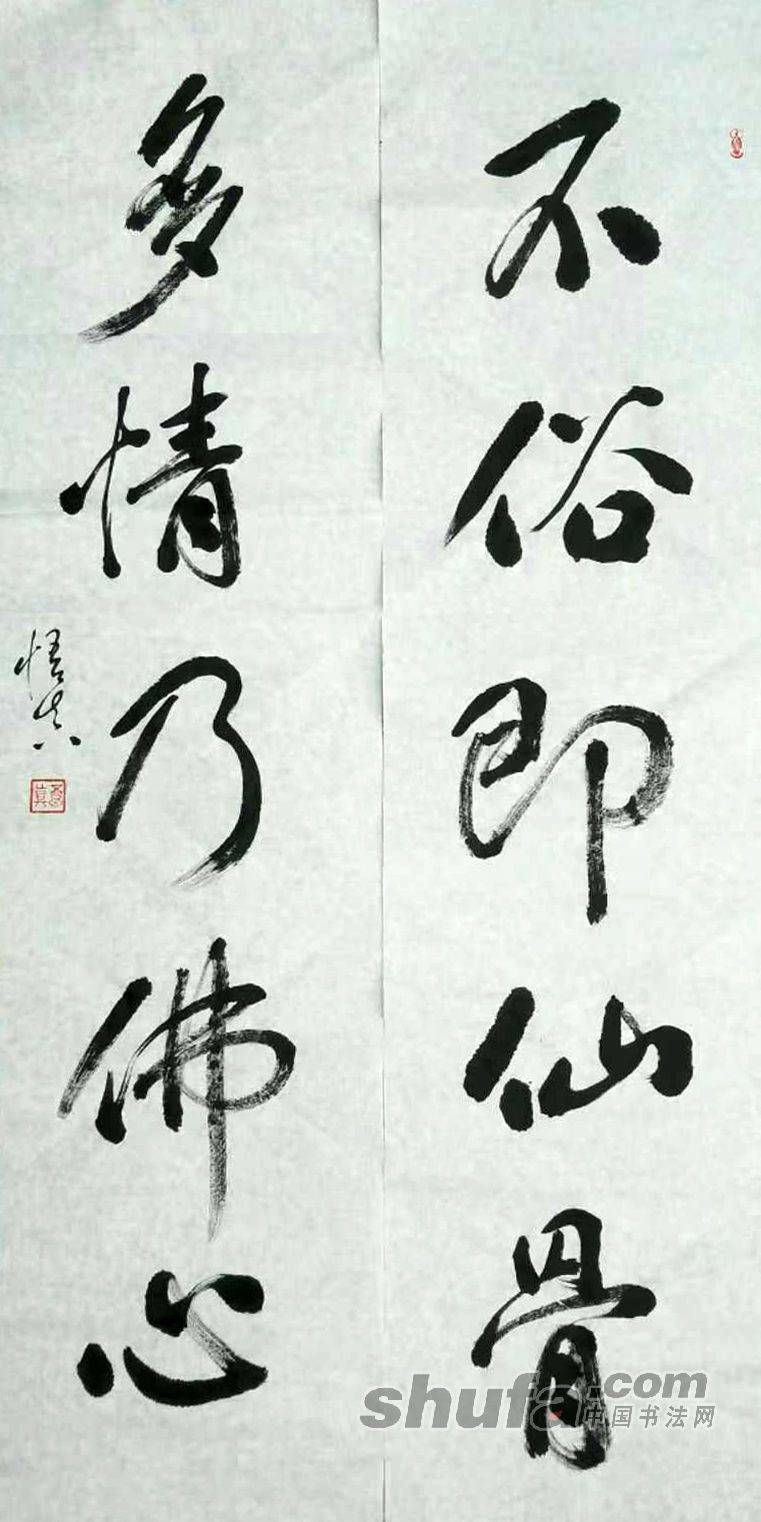 不俗即仙骨
多情乃佛心
悟真
shufa.com
中国书法网